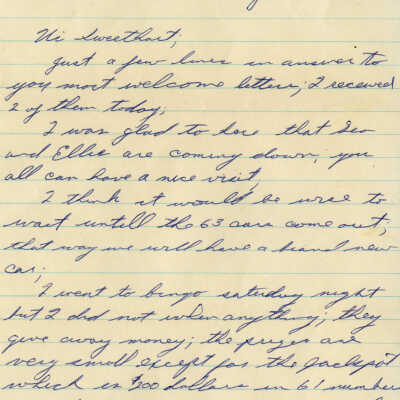 Hi Sweethart;
just a few lines in answer to
your most welcome letters; I received
2 of them today;
I was glad to here that Geo
and Ellie are coming down, you
all can have a nice visit,
I think it would be wise to
wait untill the 63 cars come out;
that way we will have a brand new
car;
I went to bingo saturday night
but I did not win anything; they
give away money; the prizes are
very small except for the Jackpot
which is $200 dollars in 61 numbers